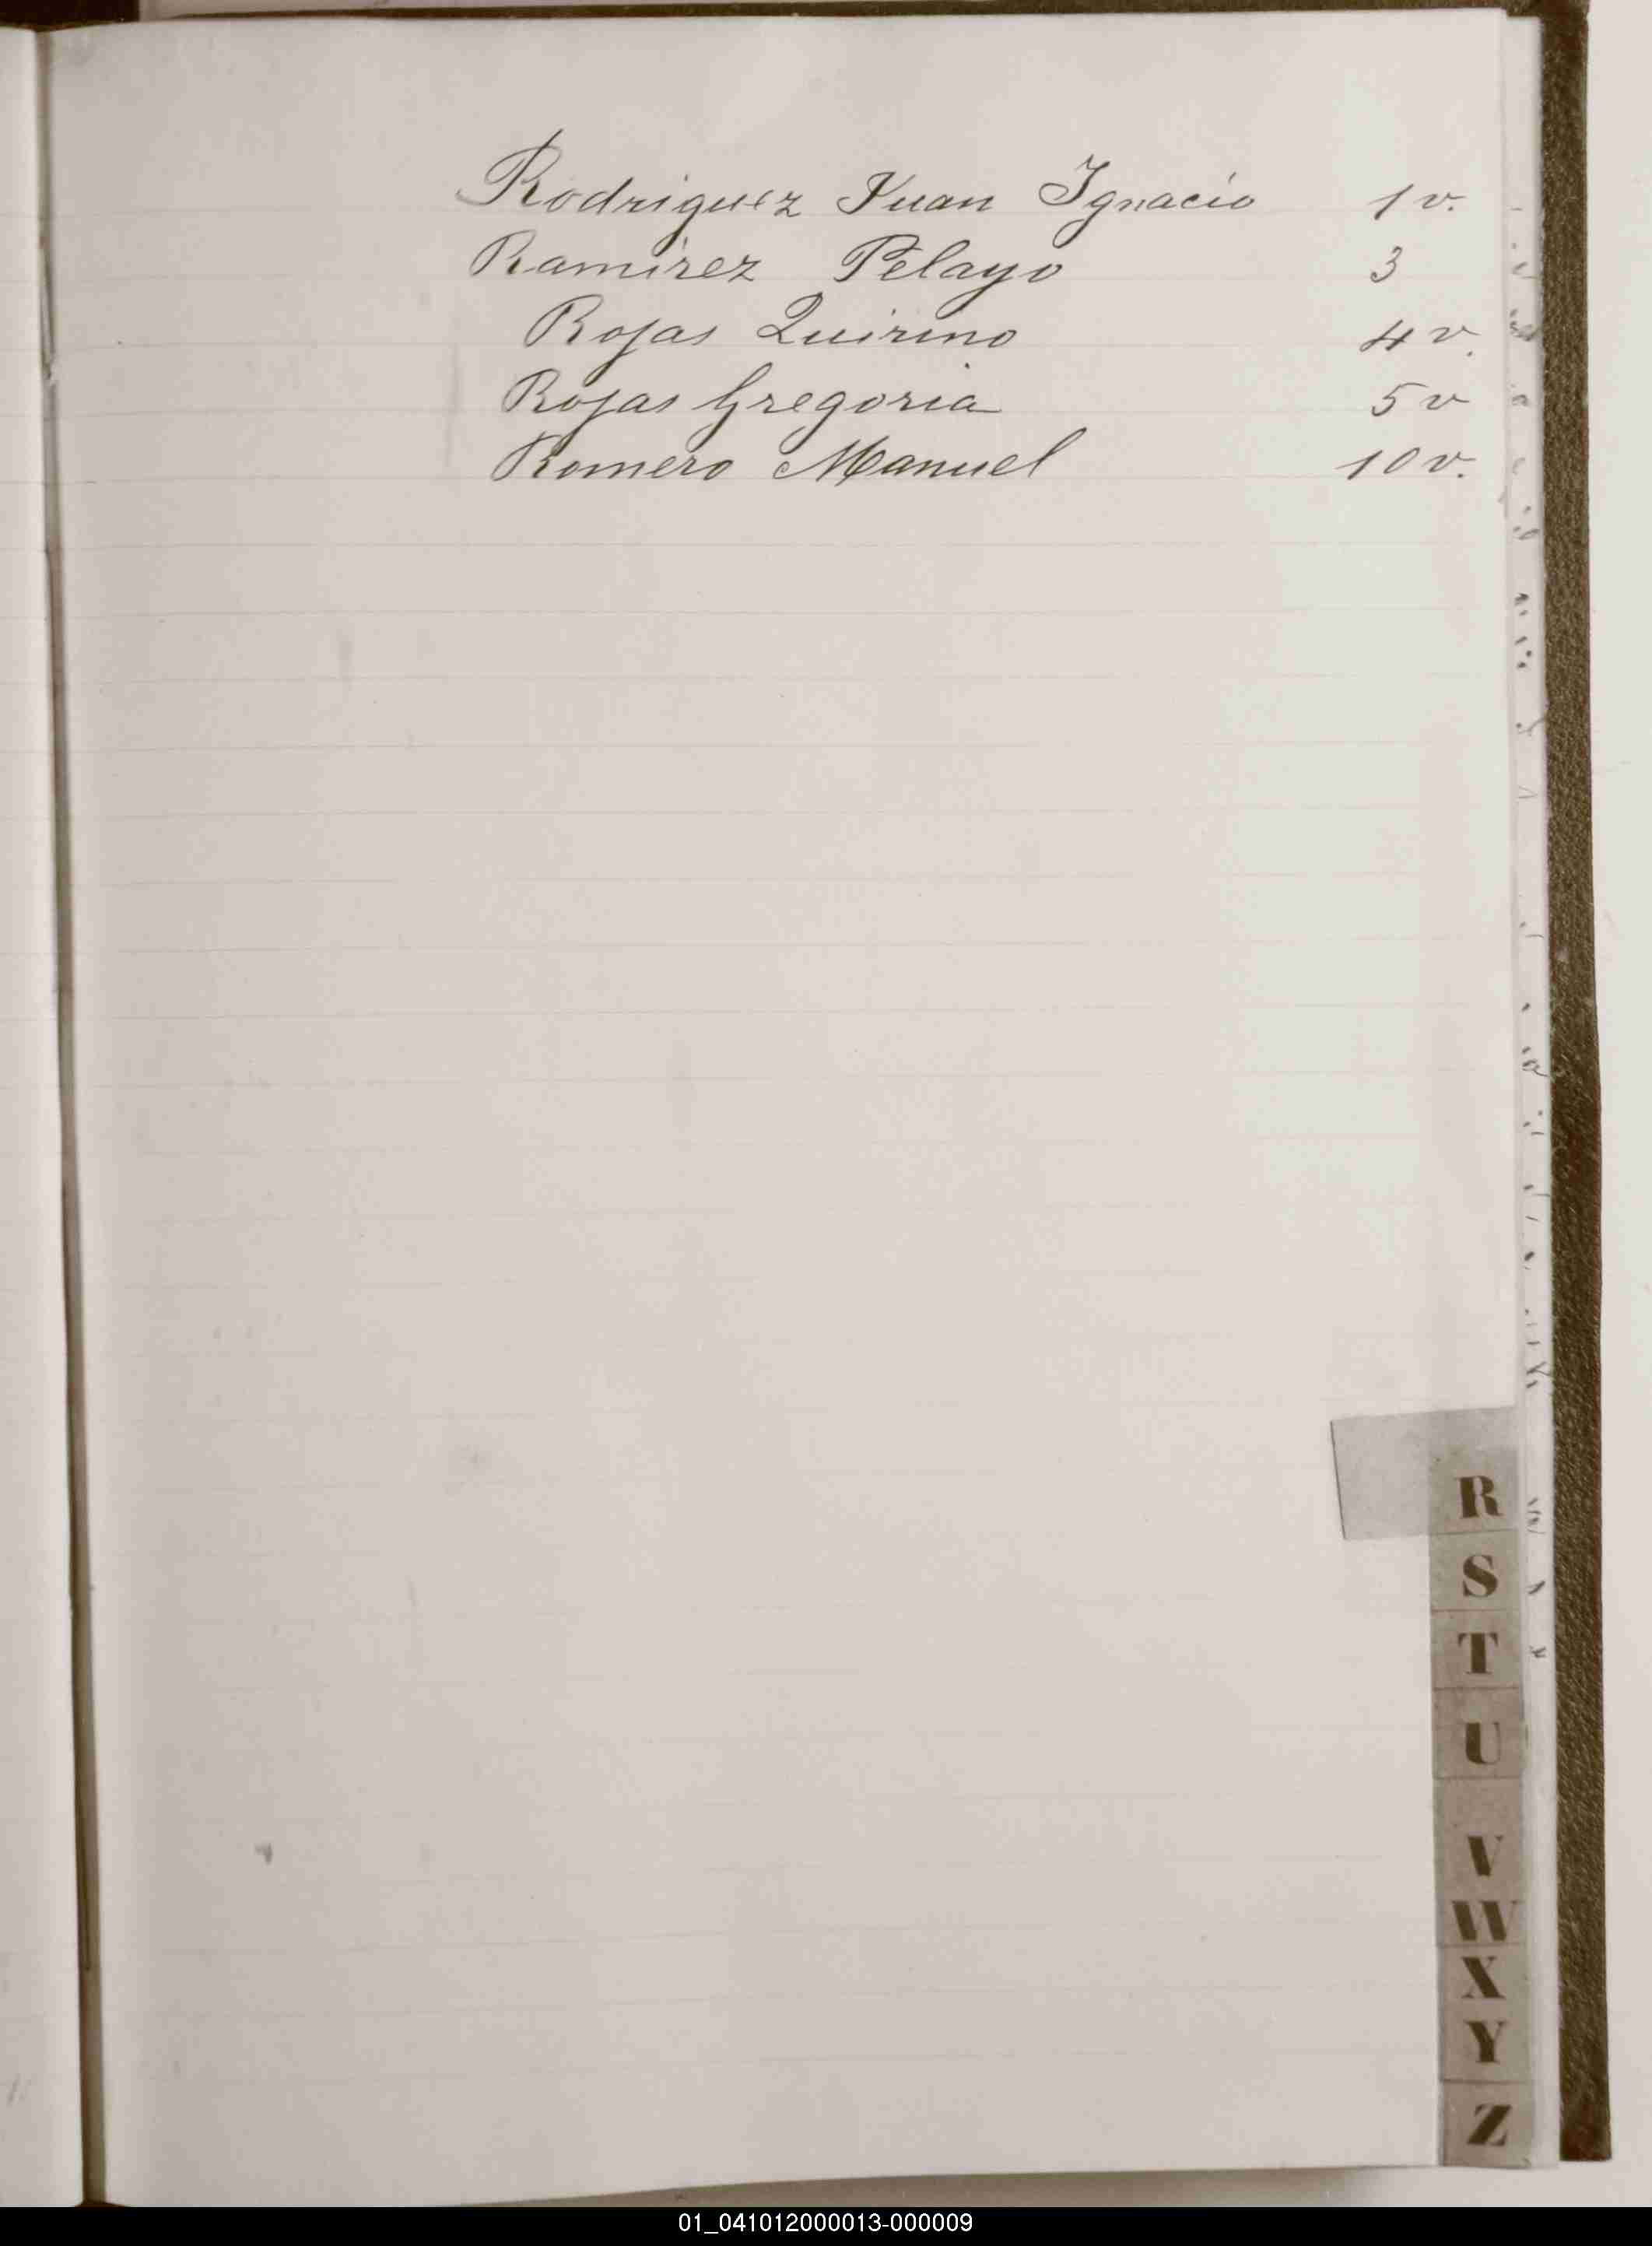 Rodriguez Juan Ignacio 1 v.
Ramirez Pelayo 3
Rojas Quirino 4 v.
Rojas Gregoria 5 v
Romero Manuel 10 v.
R
S
T
U
V
W
X
Y
Z
01_041012000013-000009